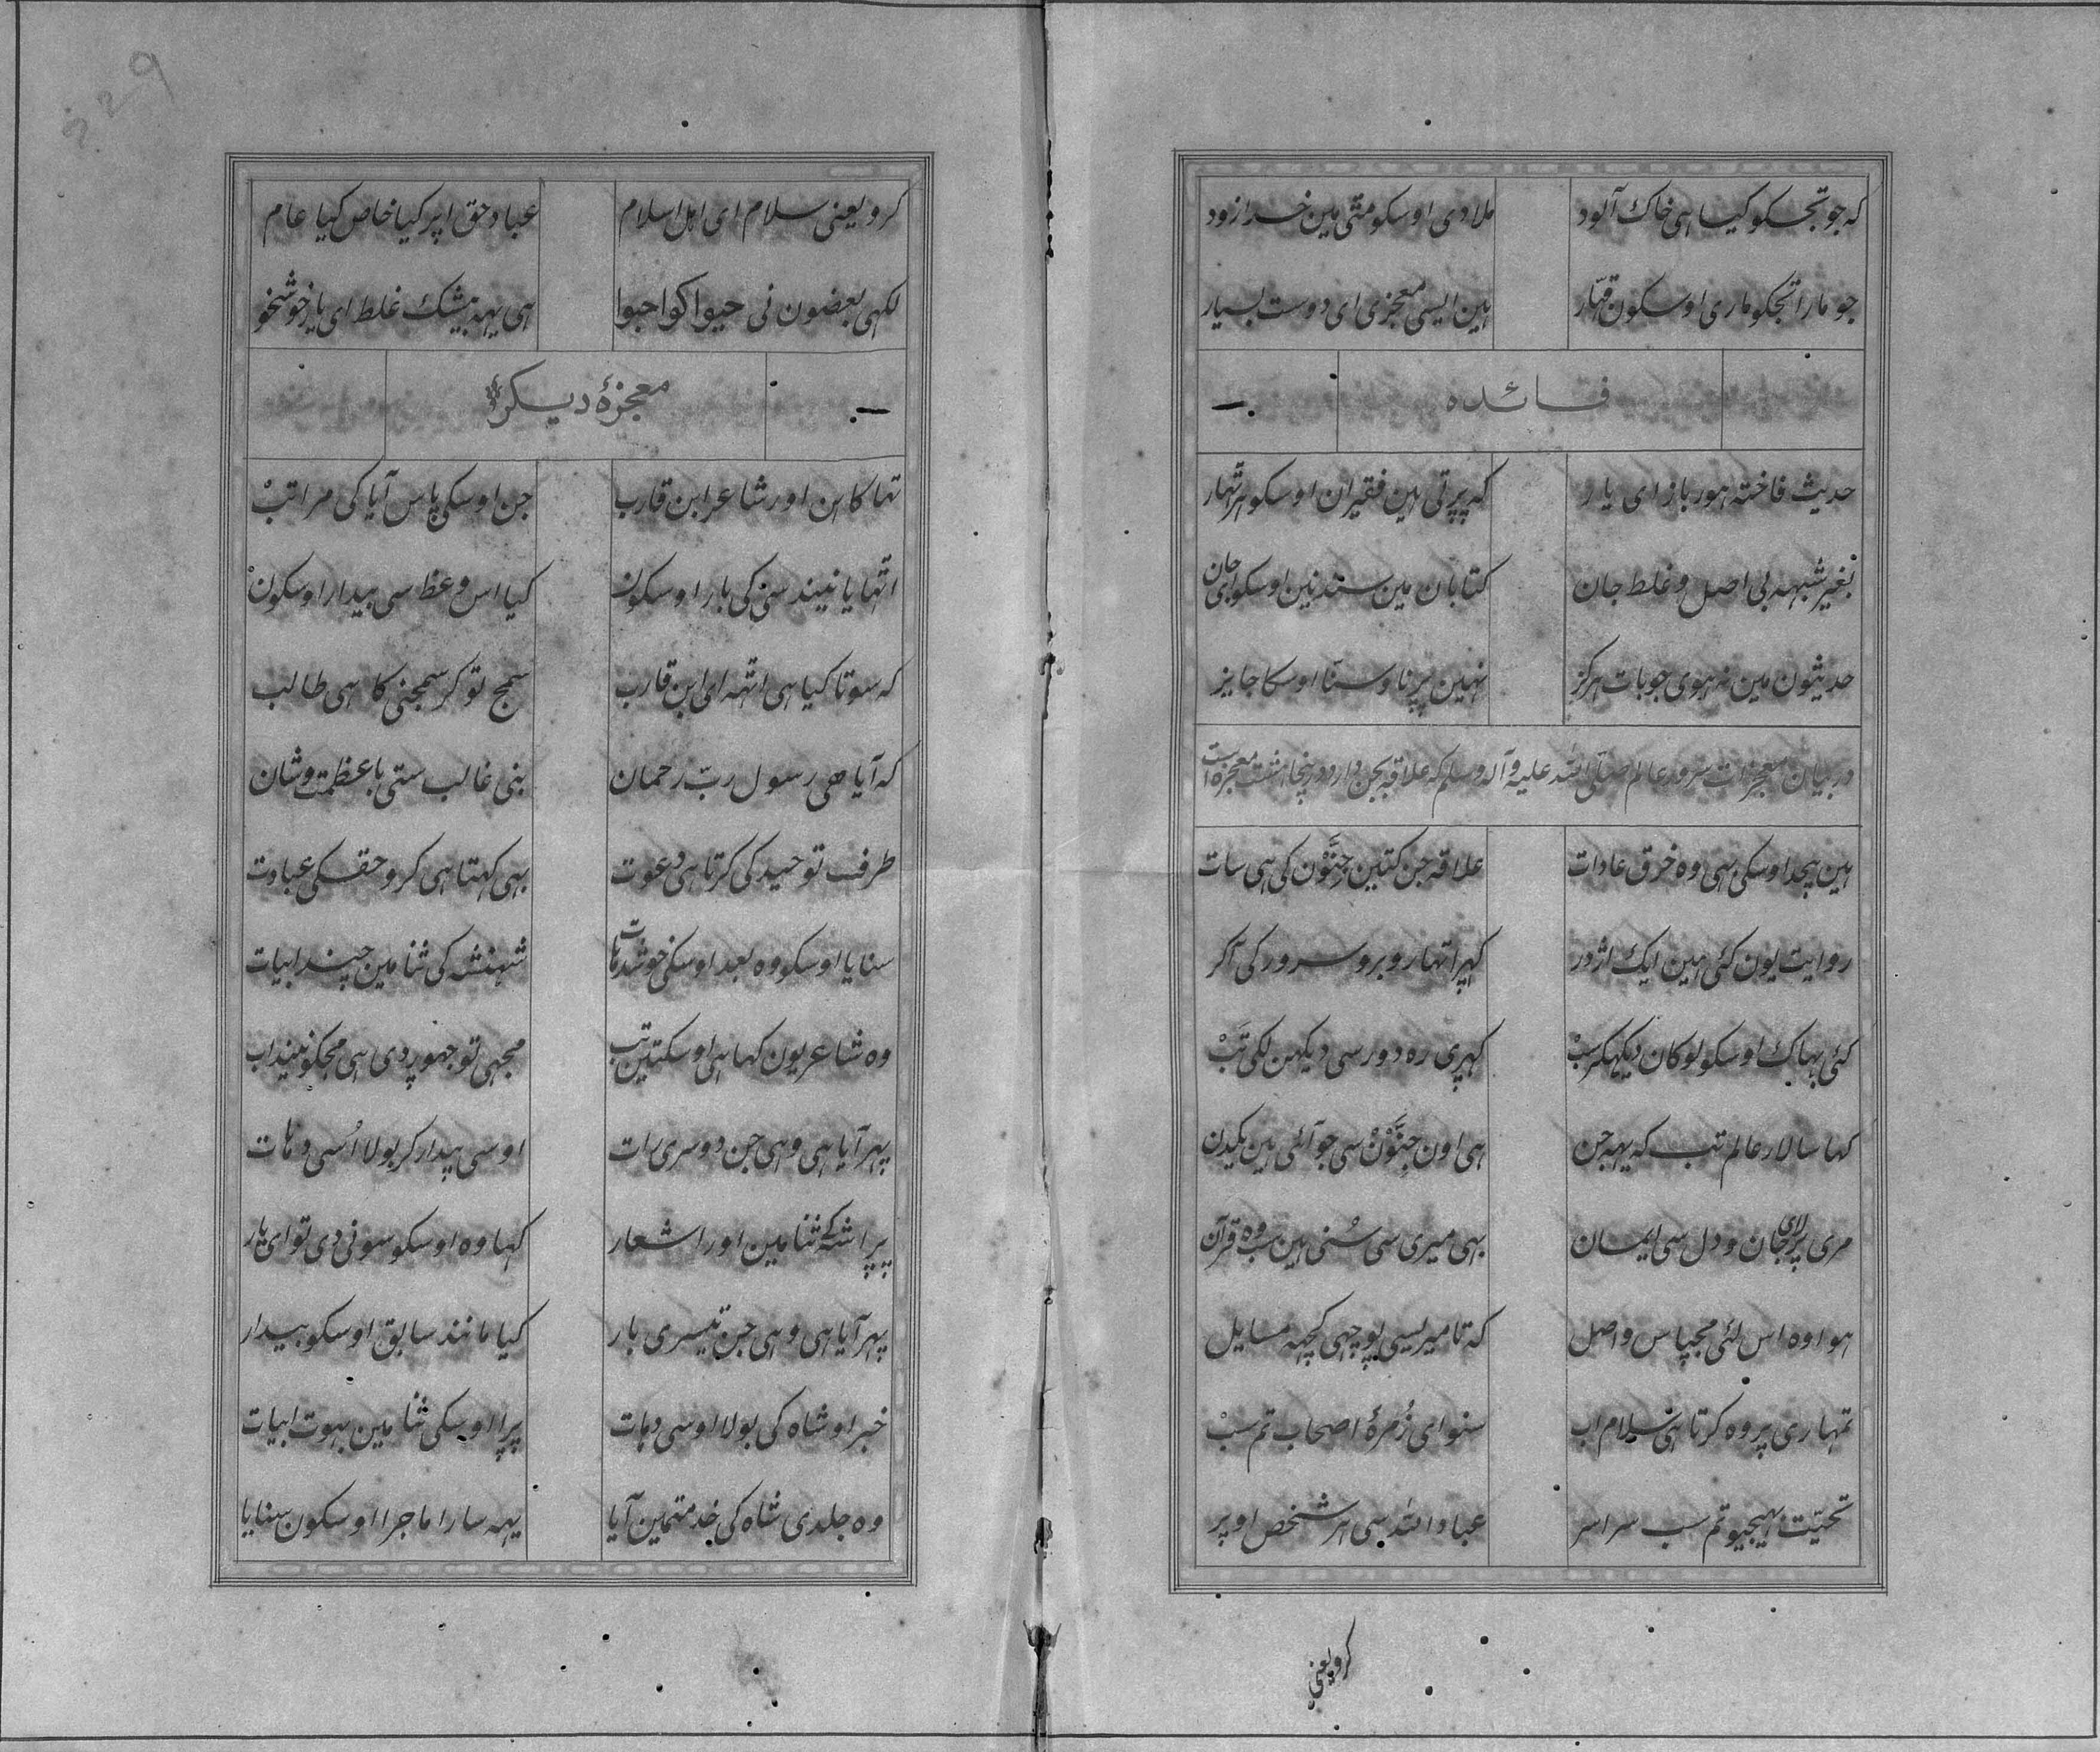 کہ جو تجکو کیا ہی خاک آلود	ملادی اوسکو مٹی مین خدا زود
جو مارا تجکو ماری اوسکون قہار	ہین ایسی معجزی ای دوست بسیار
فائدہ
حدیث فاختہ ہور باز ای یار	کہ پڑتی ہین فقیران اوسکو ہر ٹھار
بغیر شبہہ بی اصل و غلط جان	کتابان مین سند نین اوسکو ای جان
حدیثون مین نہ ہوی جو بات ہرکز	نہین پڑنا و سننا اوسکا جایز
در بیان معجزات سرور عالم صلی اللہ علیہ وآلہ وسلم کہ علاقہ بجن دارد و پنجا ہشت معجزہ است
ہین بعد اوسکی سہی وہ خرق عادات	علاقہ جن کتین جنّون کی ہی سات
روایت یون کئی ہین ایک اژدر	کھڑا تھا روبرو سرور کی آکر
گئی بھاک اوسکو لوکان دیکھکر سب	کھڑی رہ دور سی دیکہن لکی تب
کہا سالار عالم تب کہ یہہ جن	ہی اون جنّون سی جو آئی ہین یکدن
مری پر لای جان و دل سی ایمان	بہی میری سی سُنی ہین سب وہ قرآن
ہوا وہ اس لئی مجپاس واصل	کہ تا میریسی پوچہی کچہہ مسایل
تمہاری پر وہ کرتا ہی سلام اب	سنو ای زُمرۂ اصحاب تم سب
تحیّت بہیجیو تم سب سراسر	عباد اللہ سی ہر شخص اوپر
کرو یعنی
کرو یعنی سلام ای اہل اسلام	عباد حق اپر کیا خاص کیا عام
لکہی بعضون نی حیوا کو احبوا	ہی یہہ بیشک غلط ای یار خوشخو
معجزۂ دیکر
تہا کاہن اور شاعر ابن قارب	جن اوسکی پاس آیا کی مراتب
اتھایا نیند سی کی بار اوسکون	کیا اس وعظ سی بیدار اوسکون
کہ سوتا کیا ہی اتھہ ای ابن قارب	سمج تو کر سمجنی کا ہی طالب
کہ آیا ھی رسول ربّ رحمان	بنی غالب ستی با عظمت و شان
طرف توحید کی کرتا ہی دعوت	بہی کہتا ہی کرو حق کی عبادت
سنایا اوسکو وہ بعد اوسکی خوشدھات	شہنشہ کی ثنا مین چند ابیات
وہ شاعر یون کہا ہی اوسکتین تب	مجہی تو جہوڑ دی ہی مجکو نیند اب
پہر آیا ہی وہی جن دوسری رات	اوسی بیدار کر بولا اُسی دھات
پڑا شہ کی ثنا مین اور اشعار	کہا وہ اوسکو سونی دی تو ای یار
پہر آیا ہی وہی جن تیسری بار	کیا مانند سابق اوسکو بیدار
خبر او شاہ کی بولا اوسی دھات	پڑا اوسکی ثنا مین بہوت ابیات
وہ جلدی شاہ کی خدمتمین آیا	یہہ سارا ماجرا اوسکون سنایا